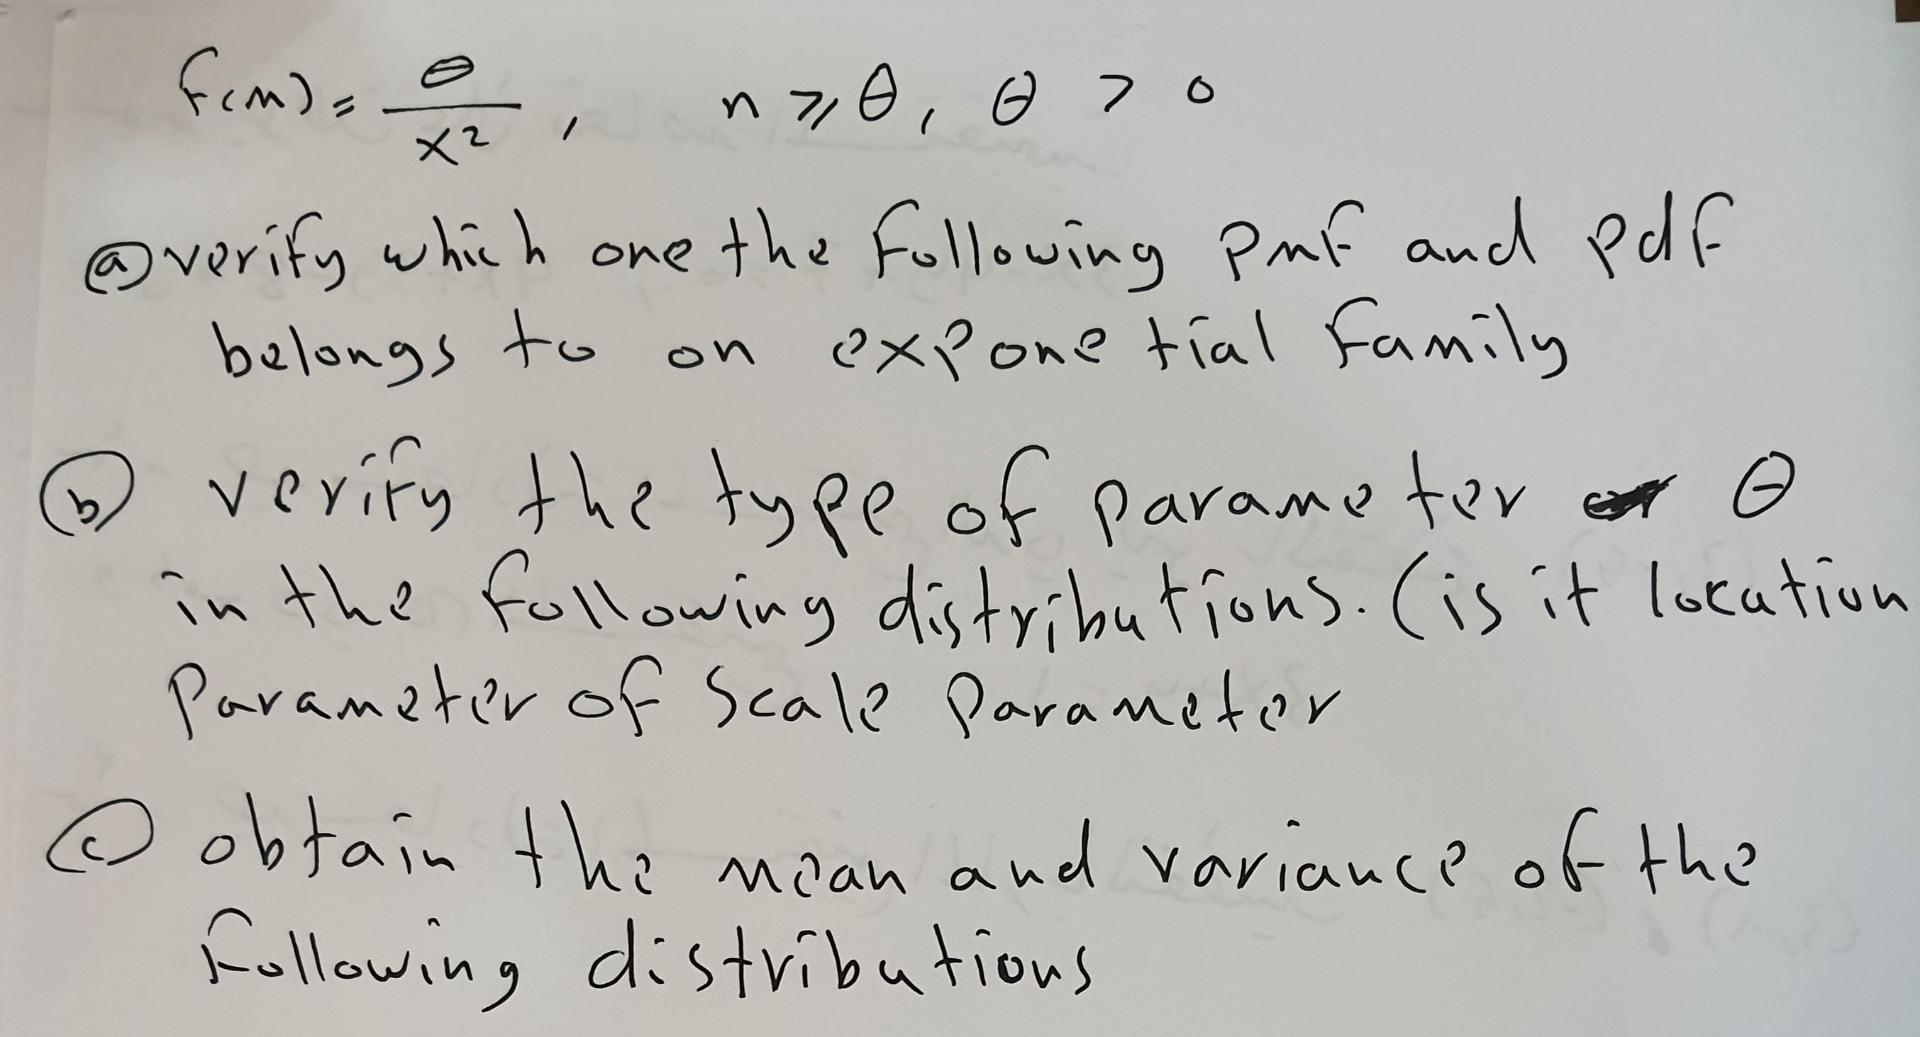 f(x) = θ/x², x ≥ θ, θ > 0
(a) verify which one the following pmf and pdf
belongs to on exponetial family
(b) verify the type of parameter θ
in the following distributions. (is it location
parameter of scale parameter
(c) obtain the mean and variance of the
following distributions